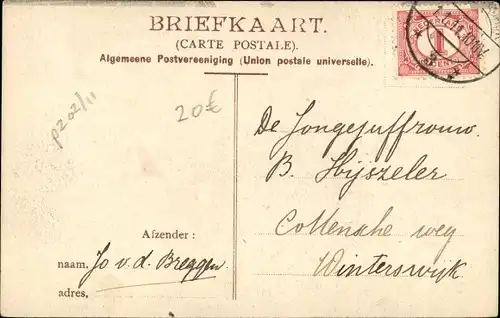 BRIEFKAART.
(CARTE POSTALE).
Algemeene Postvereeniging (Union postale universelle).
1
CENT
p202/11
20€
De Jongejuffrouw.
B. Hijszeler
Cottensche weg
Winterswijk
Afzender:
naam, Jo v. d. Breggen.
adres,